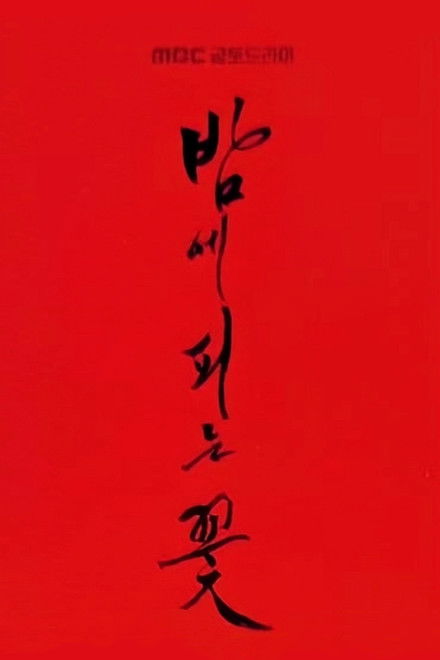 MBC 금토드라마
밤에 피는 꽃